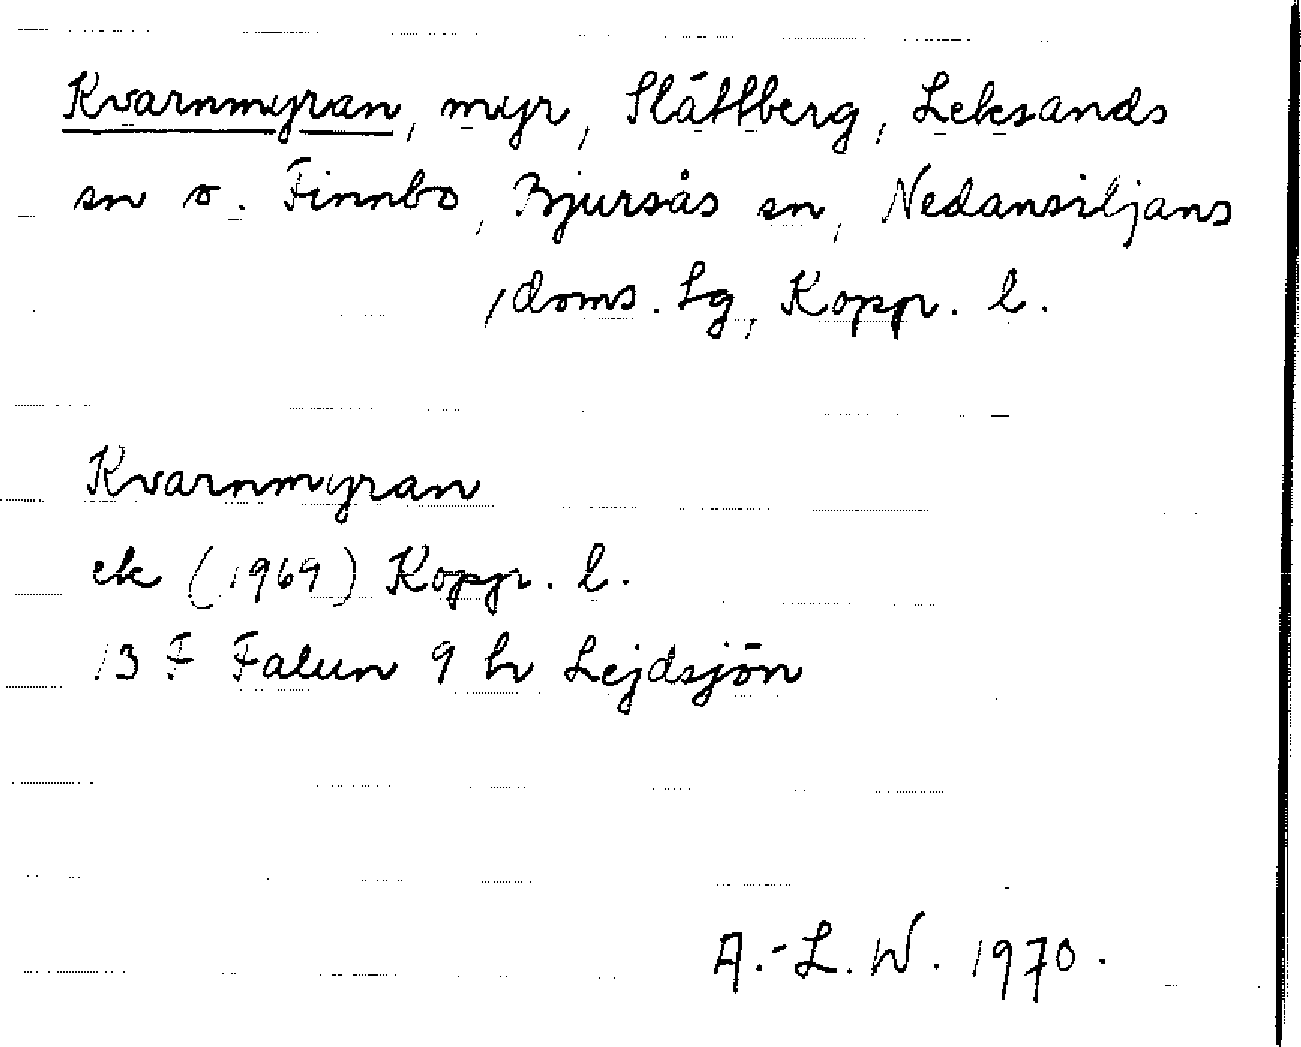 Kvarnmyran, myr, Slättberg, Leksands
sn o. Finnbo, Bjursås sn, Nedansiljans
doms. lg, Kopp. l.
Kvarnmyran
ek (1969) Kopp. l.
13 F Falun 9 h Lejdsjön
A.-L. W. 1970.